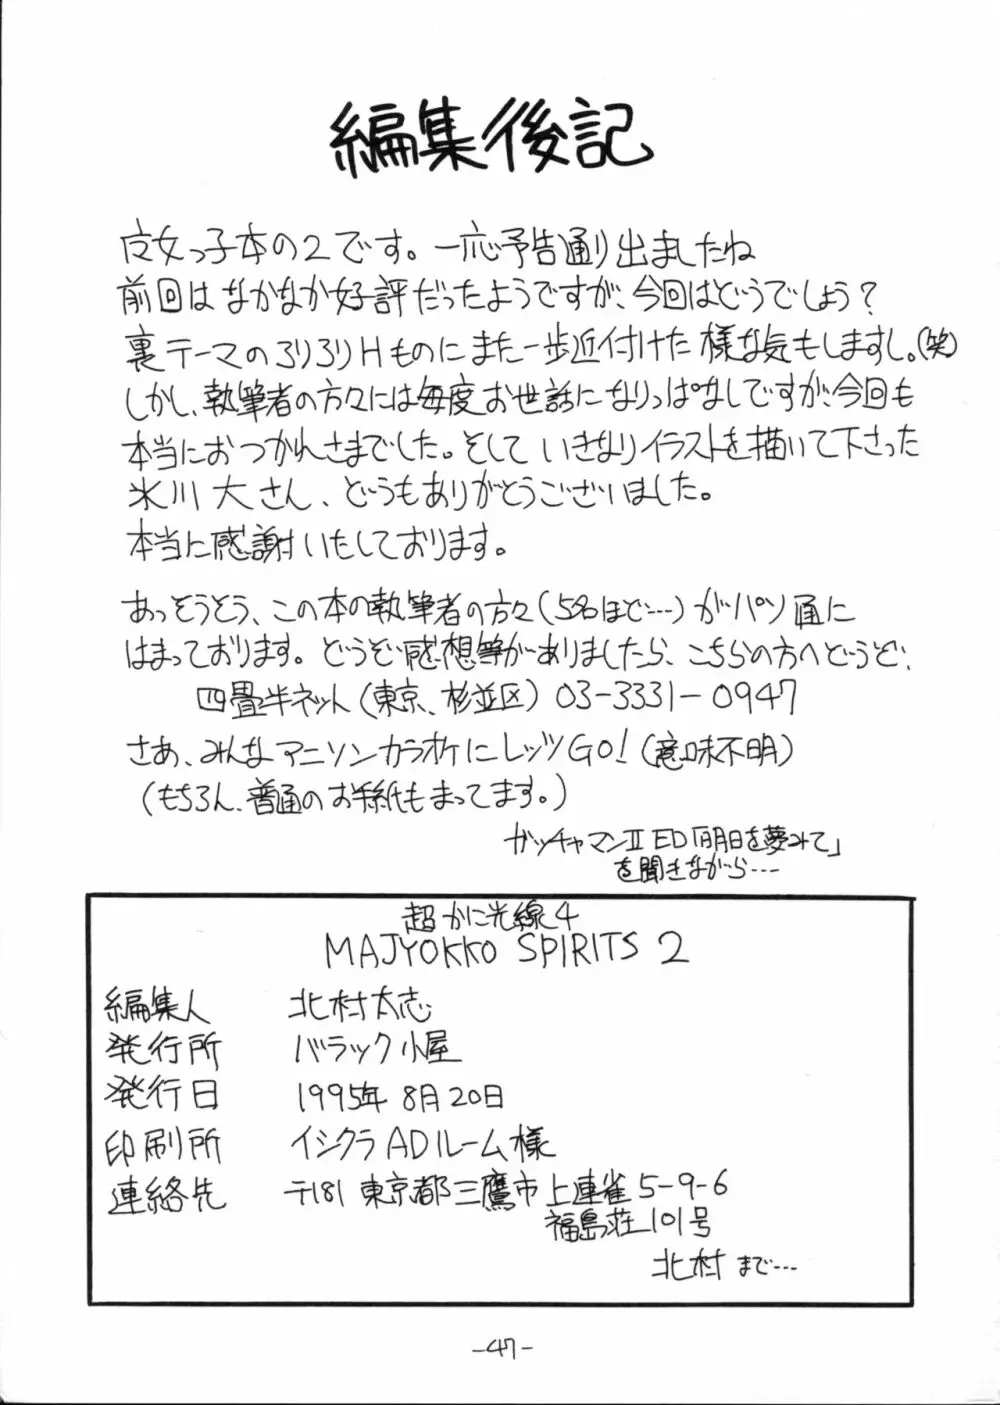 編集後記
魔女っ子本の2です。一応予告通り出ましたね
前回はなかなか好評だったようですが、今回はどうでしょう?
裏テーマのろりろりHものにまた一歩近付けた様な気もしますし。(笑)
しかし、執筆者の方々には毎度お世話になりっぱなしですが、今回も
本当におつかれさまでした。そして いきなりイラストを描いて下さった
氷川大さん、どうもありがとうございました。
本当に感謝いたしております。
あっそうそう、この本の執筆者の方々(5名ほど…)がパソ通に
はまっております。どうぞ感想等がありましたら、こちらの方へどうぞ、
四畳半ネット(東京、杉並区) 03-3331-0947
さあ、みんなアニソンカラオケにレッツGO!(意味不明)
(もちろん、普通のお手紙もまってます。)
ガッチャマンII ED「明日を夢みて」
を聞きながら…
超かに光線4
MAJYOKKO SPIRITS 2
編集人 北村太志
発行所 バラック小屋
発行日 1995年8月20日
印刷所 イシクラADルーム様
連絡先 〒181 東京都三鷹市上連雀5-9-6
福島荘101号
北村まで…
-47-